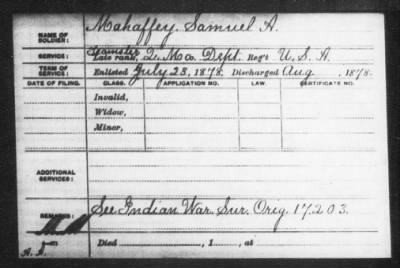 NAME OF SOLDIER: Mahaffey. Samuel A.
SERVICE: Teamster Late rank, Q. M. Dept. Reg't U. S. A.
TERM OF SERVICE: Enlisted July 23, 1878, Discharged Aug , 1878.
DATE OF FILING. CLASS. APPLICATION NO. LAW. CERTIFICATE NO.
Invalid,
Widow,
Minor,
ADDITIONAL SERVICES:
REMARKS: See Indian War. Sur. Orig. 17203.
Died , 1 , at